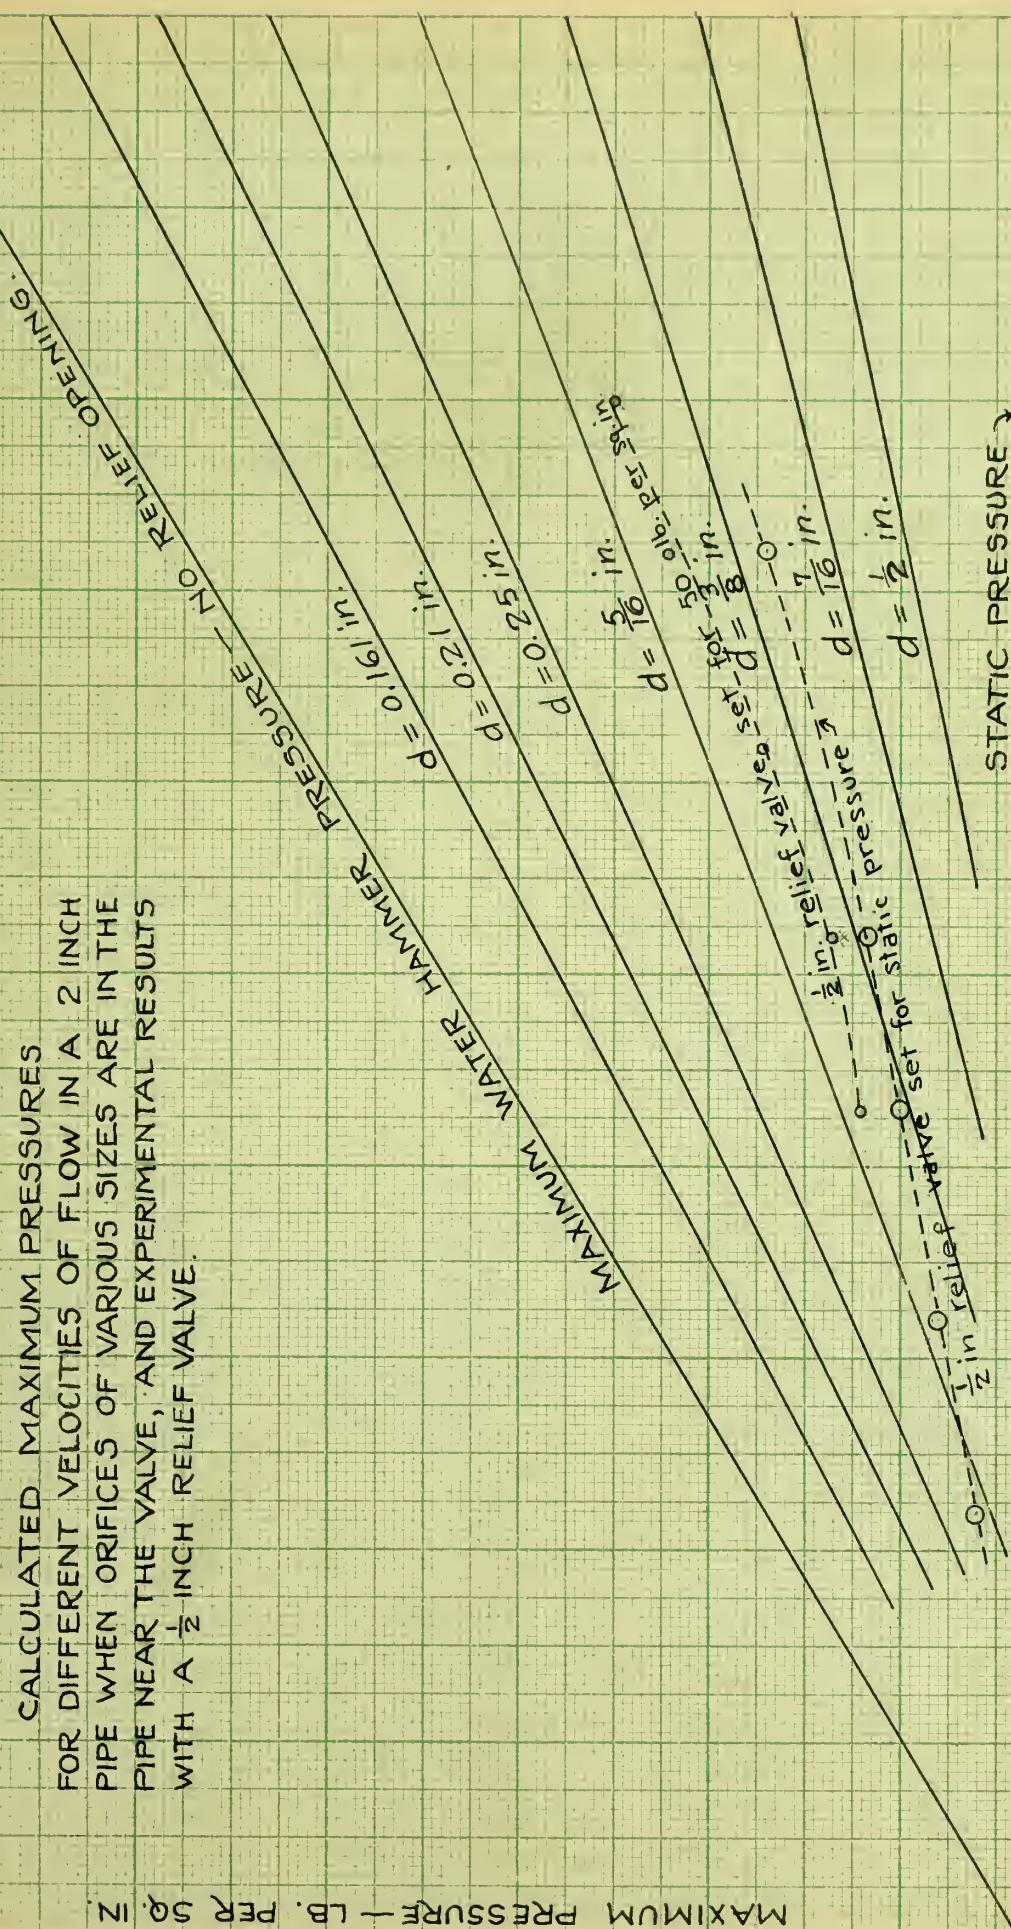 CALCULATED MAXIMUM PRESSURES
FOR DIFFERENT VELOCITIES OF FLOW IN A 2 INCH
PIPE WHEN ORIFICES OF VARIOUS SIZES ARE IN THE
PIPE NEAR THE VALVE, AND EXPERIMENTAL RESULTS
WITH A 1/2 INCH RELIEF VALVE.
MAXIMUM WATER HAMMER PRESSURE — NO RELIEF OPENING.
d = 0.161 in.
d = 0.21 in.
d = 0.25 in.
d = 5/16 in.
1/2 in. relief valve set for 50 lb. per sq. in.
d = 3/8 in.
1/2 in relief valve set for static pressure
d = 7/16 in.
d = 1/2 in.
STATIC PRESSURE
MAXIMUM PRESSURE — LB. PER SQ. IN.